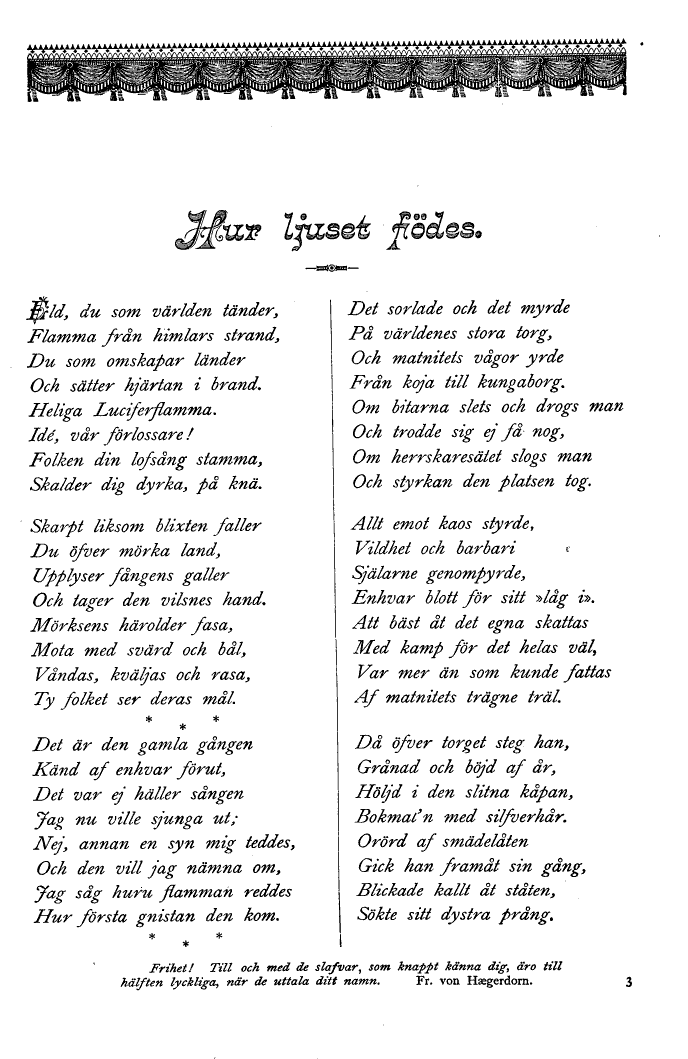 Hur ljuset födes.
Eld, du som världen tänder,
Flamma från himlars strand,
Du som omskapar länder
Och sätter hjärtan i brand.
Heliga Luciferflamma.
Idé, vår förlossare!
Folken din lofsång stamma,
Skalder dig dyrka, på knä.
Skarpt liksom blixten faller
Du öfver mörka land,
Upplyser fångens galler
Och tager den vilsnes hand.
Mörksens härolder fasa,
Mota med svärd och bål,
Våndas, kväljas och rasa,
Ty folket ser deras mål.
* * *
Det är den gamla gången
Känd af enhvar förut,
Det var ej häller sången
Jag nu ville sjunga ut;
Nej, annan en syn mig teddes,
Och den vill jag nämna om,
Jag såg huru flamman reddes
Hur första gnistan den kom.
* * *
Det sorlade och det myrde
På världenes stora torg,
Och matnitets vågor yrde
Från koja till kungaborg.
Om bitarna slets och drogs man
Och trodde sig ej få nog,
Om herrskaresätet slogs man
Och styrkan den platsen tog.
Allt emot kaos styrde,
Vildhet och barbari
Själarne genompyrde,
Enhvar blott för sitt »låg i».
Att bäst åt det egna skattas
Med kamp för det helas väl,
Var mer än som kunde fattas
Af matnitets trägne träl.
Då öfver torget steg han,
Grånad och böjd af år,
Höljd i den slitna kåpan,
Bokmal'n med silfverhår.
Orörd af smädelåten
Gick han framåt sin gång,
Blickade kallt åt ståten,
Sökte sitt dystra prång.
Frihet! Till och med de slafvar, som knappt känna dig, äro till
hälften lyckliga, när de uttala ditt namn. Fr. von Hægerdorn.
3